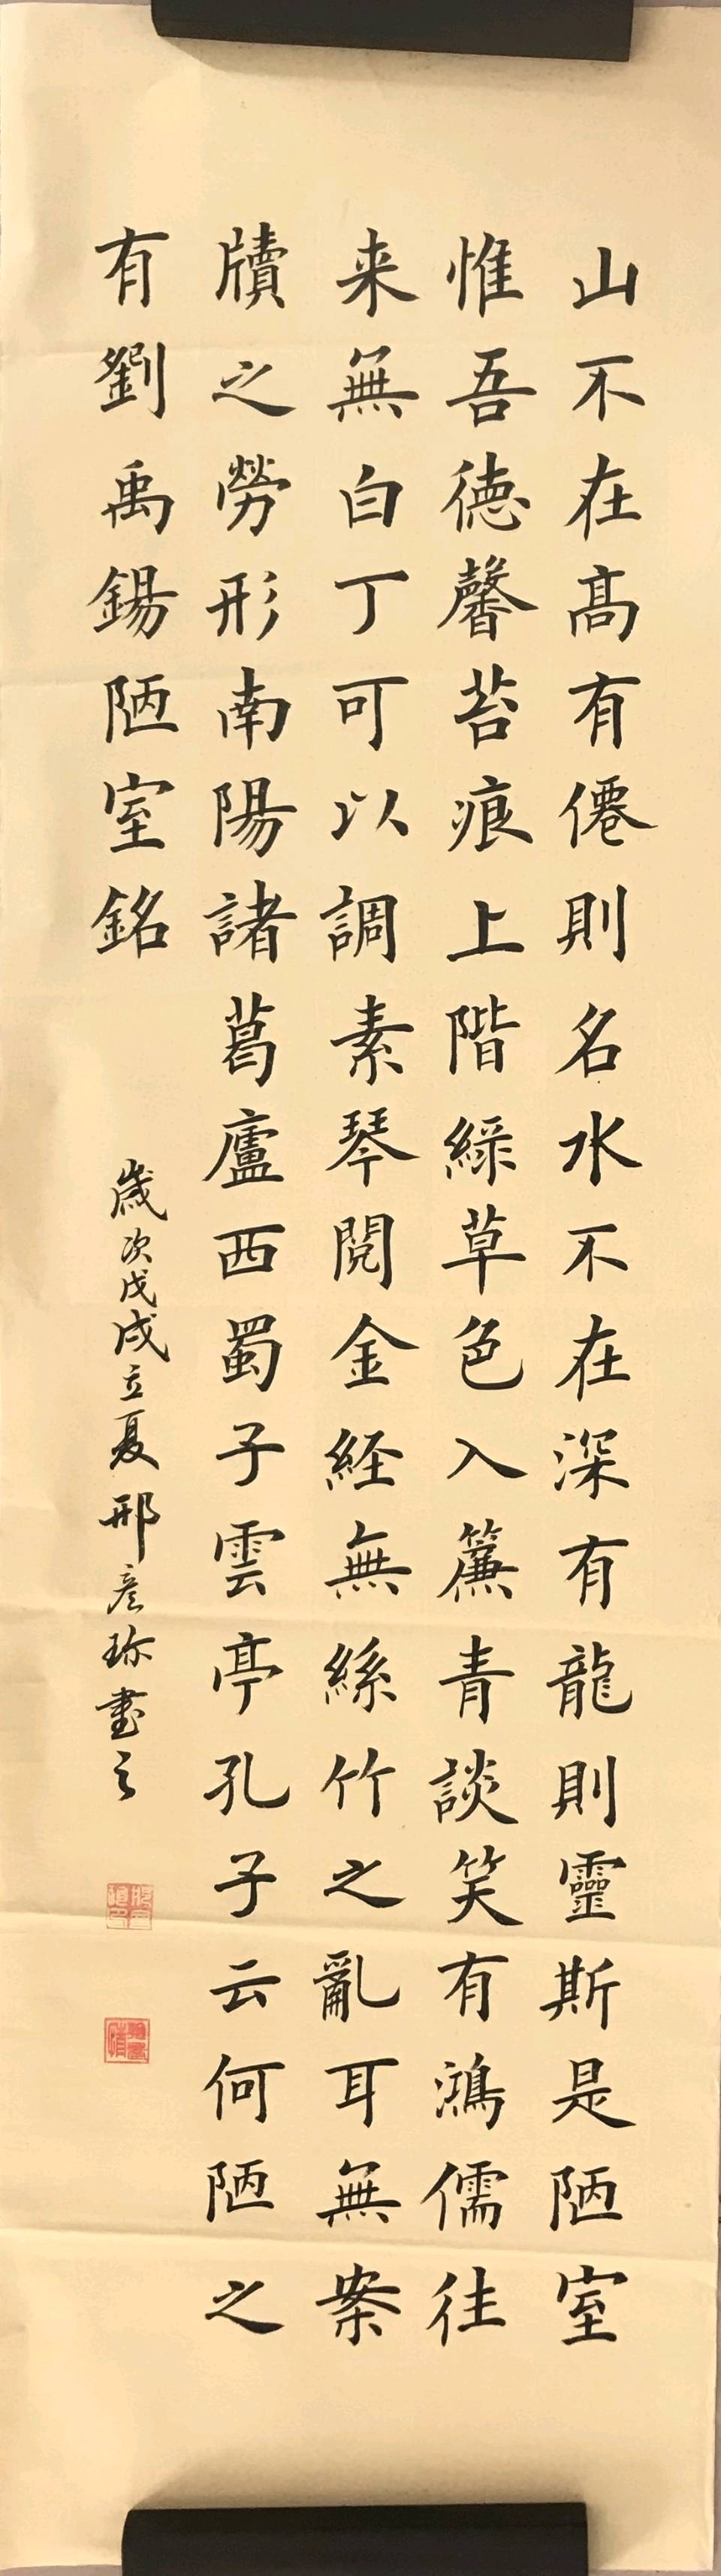 山不在高有僊則名水不在深有龍則靈斯是陋室
惟吾德馨苔痕上階綠草色入簾青談笑有鴻儒往
来無白丁可以調素琴閱金経無絲竹之亂耳無案
牘之勞形南陽諸葛廬西蜀子雲亭孔子云何陋之
有劉禹錫陋室銘
歲次戊戌立夏邢彦珎書之